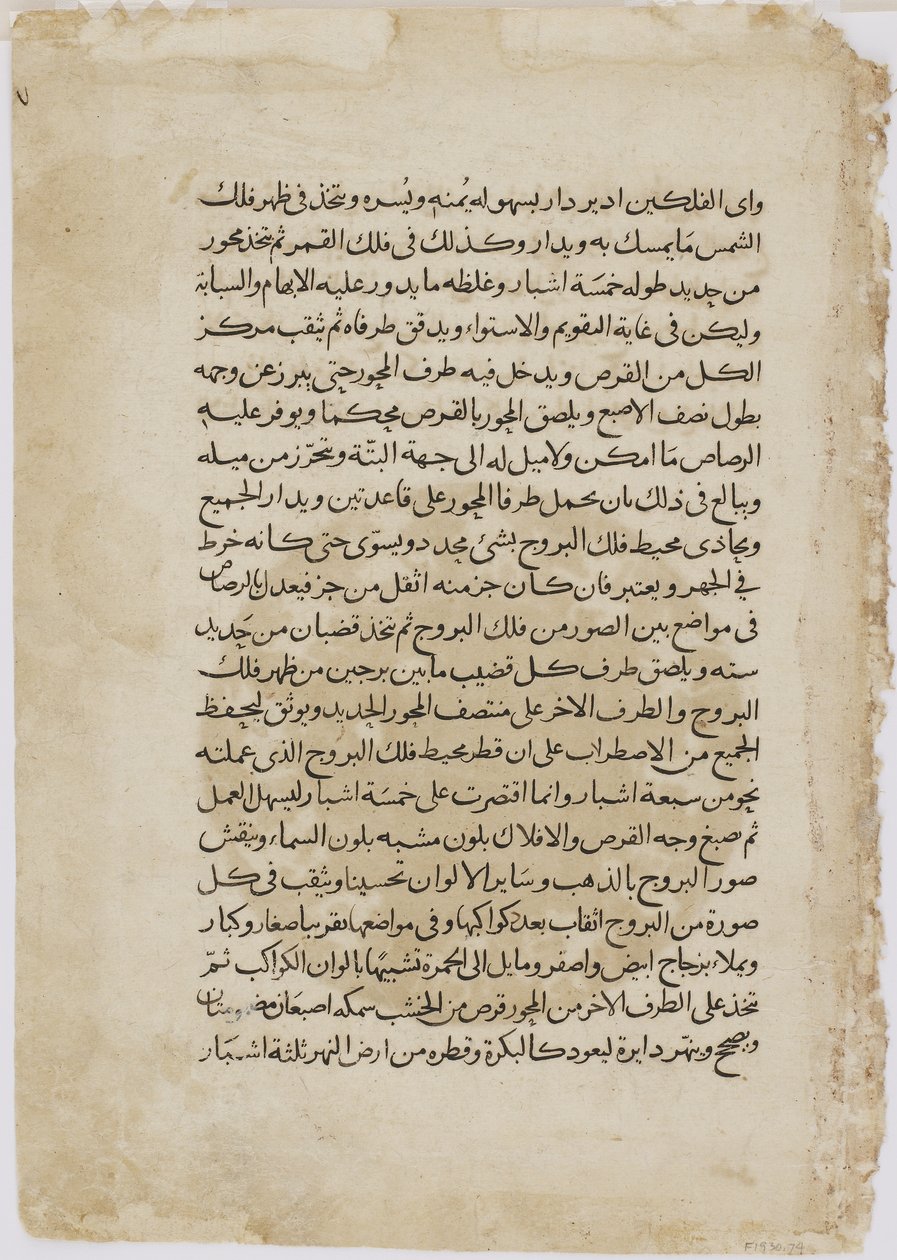 واى الفلكين ادير دار بسهوله يُمنه ويُسره ويتخذ فى ظهر فلك
الشمس مَا يمسك به ويدار وكذلك فى فلك القمر ثم يتخذ محور
من حديد طوله خمسَة اشبار وغلظه ما يدور عليه الابهام والسبابة
وليكن فى غاية التقويم والاستواء ويدقق طرفاه ثم يثقب مركز
الكل من القرص ويدخل فيه طرف المحور حتى يبرز عن وجهه
بطول نصف الاصبع ويلصق المحور بالقرص محكما ويوفر عليه
الرصاص مَا امكن ولا ميل له الى جهة البتّة ويتحرّز من ميله
ويبالغ فى ذلك بان يحمل طرفا المحور على قاعدتين ويدار الجميع
ويحاذى محيط فلك البروج بشئ محدد ويسوّى حتى كانه خرط
فى الجهر ويعتبر فان كان جز منه اثقل من جز فيعدل بالرصاص
فى مواضع بين الصور من فلك البروج ثم يتخذ قضبان من حَديد
سته ويلصق طرف كل قضيب ما بين برجين من ظهر فلك
البروج والطرف الاخر على منتصف المحور الحديد ويوثق ليحفظ
الجميع من الاضطراب على ان قطر محيط فلك البروج الذى عملته
نحو من سبعة اشبار وانما اقتصرت على خمسَة اشبار ليسهل العمل
ثم يصبغ وجه القرص والافلاك بلون مشبه بلون السماء وينقش
صور البروج بالذهب وسَاير الالوان تحسينا ويثقب فى كل
صورة من البروج اثقاب بعدد كواكبها وفى مواضعها تقريبا صغار وكبار
ويملاء بزجاج ابيض واصفر ومايل الى الحمرة تشبيهًا بالوان الكواكب ثمّ
يتخذ على الطرف الاخر من المحور قرص من الخشب سمكه اصبعَان مضمومتان
ويصحح وينهّر دايرة ليعود كالبكرة وقطره من ارض النهر ثلثة اشبَار
٧
F1930.74